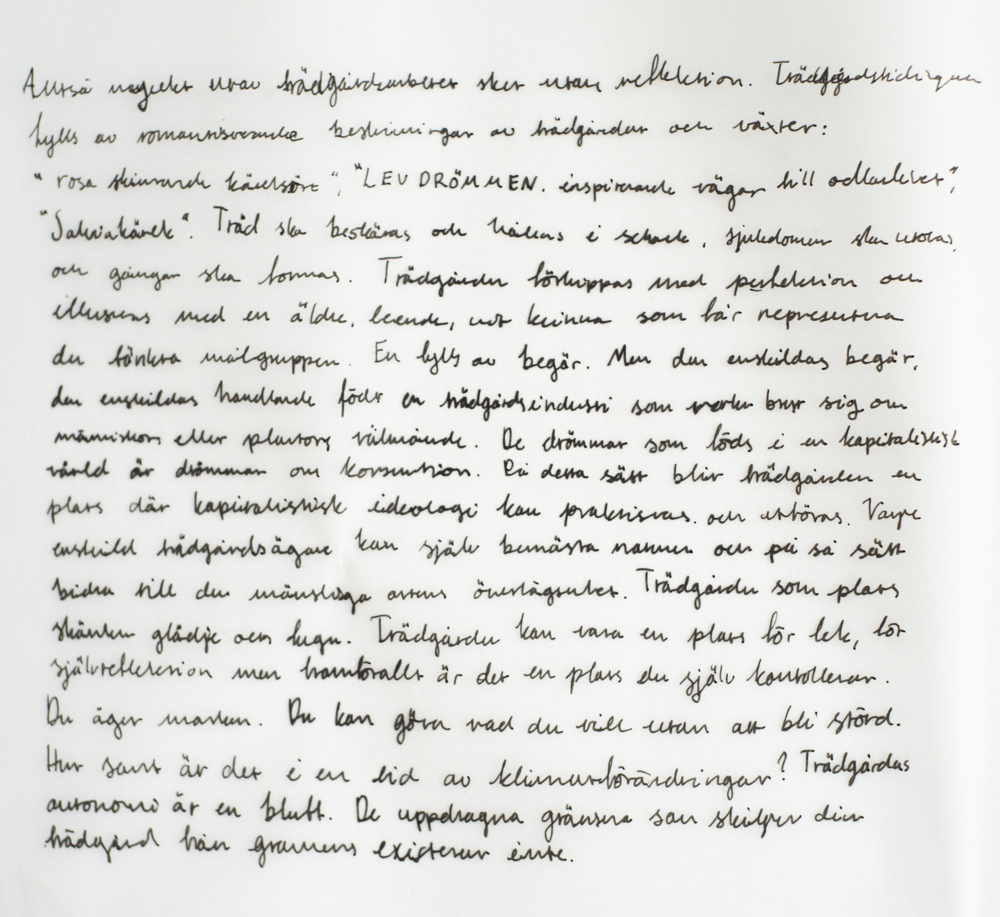 Alltså mycket utav trädgårdsarbetet sker utan reflektion. Trädgårdstidningen
fylls av romantiserande beskrivningar av trädgårdar och växter:
"rosa skimrande kärlsöte", "LEV DRÖMMEN. inspirerande vägar till odlarlivet",
"Salviakärlek". Träd ska beskäras och hållas i schack, sjukdomar ska utrotas,
och gångar ska formas. Trädgården förknippas med perfektion och
illustreras med en äldre, leende, vit kvinna som får representera
den tänkta målgruppen. En fylls av begär. Men den enskildas begär,
den enskildas handlande föder en trädgårdsindustri som varken bryr sig om
människors eller plantors välmående. De drömmar som föds i en kapitalistisk
värld är drömmar om konsumtion. På detta sätt blir trädgården en
plats där kapitalistisk ideologi kan praktiseras och utföras. Varje
enskild trädgårdsägare kan själv bemästra naturen och på så sätt
bidra till den mänskliga artens överlägsenhet. Trädgården som plats
skänker glädje och lugn. Trädgården kan vara en plats för lek, för
självreflektion men framförallt är det en plats du själv kontrollerar.
Du äger marken. Du kan göra vad du vill utan att bli störd.
Hur sant är det i en tid av klimatförändringar? Trädgårdens
autonomi är en bluff. De uppdragna gränserna som skiljer din
trädgård från grannens existerar inte.